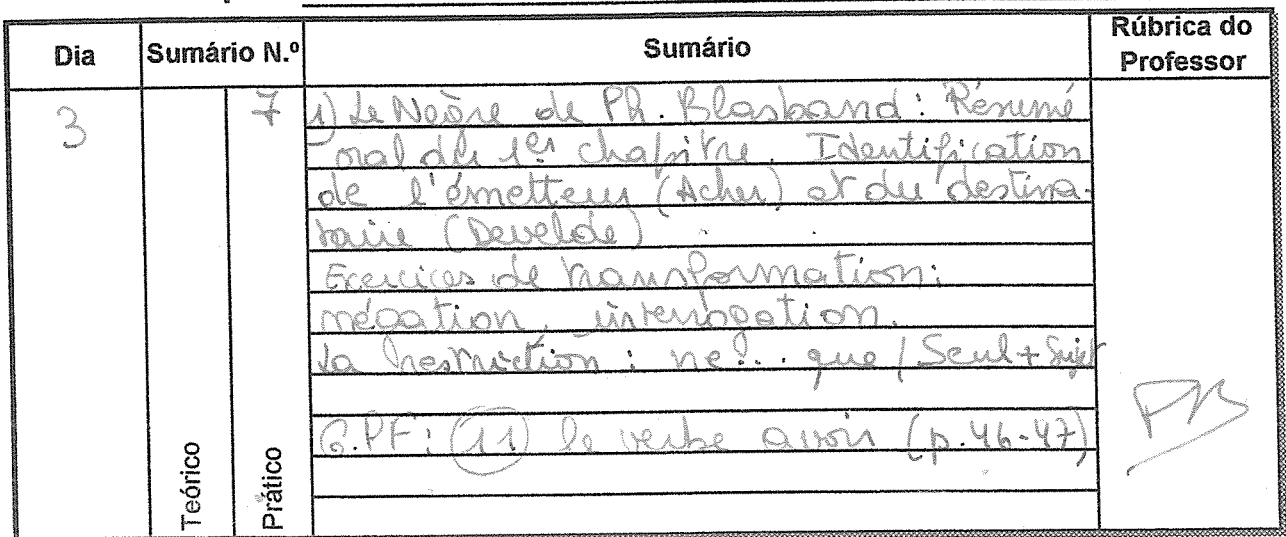 Dia Sumário N.º Sumário Rúbrica do Professor
3 7 1) Le Neòre de Ph. Blasband : Résumé
oral du 1er chapitre. Identification
de l'émetteur (Acher) et du destina-
taire (Develde)
Exercices de transformation :
négation, interrogation.
La restriction : ne... que / Seul + Sujet
G.PF : 11 le verbe avoir (p.46-47)
PB
Teórico Prático